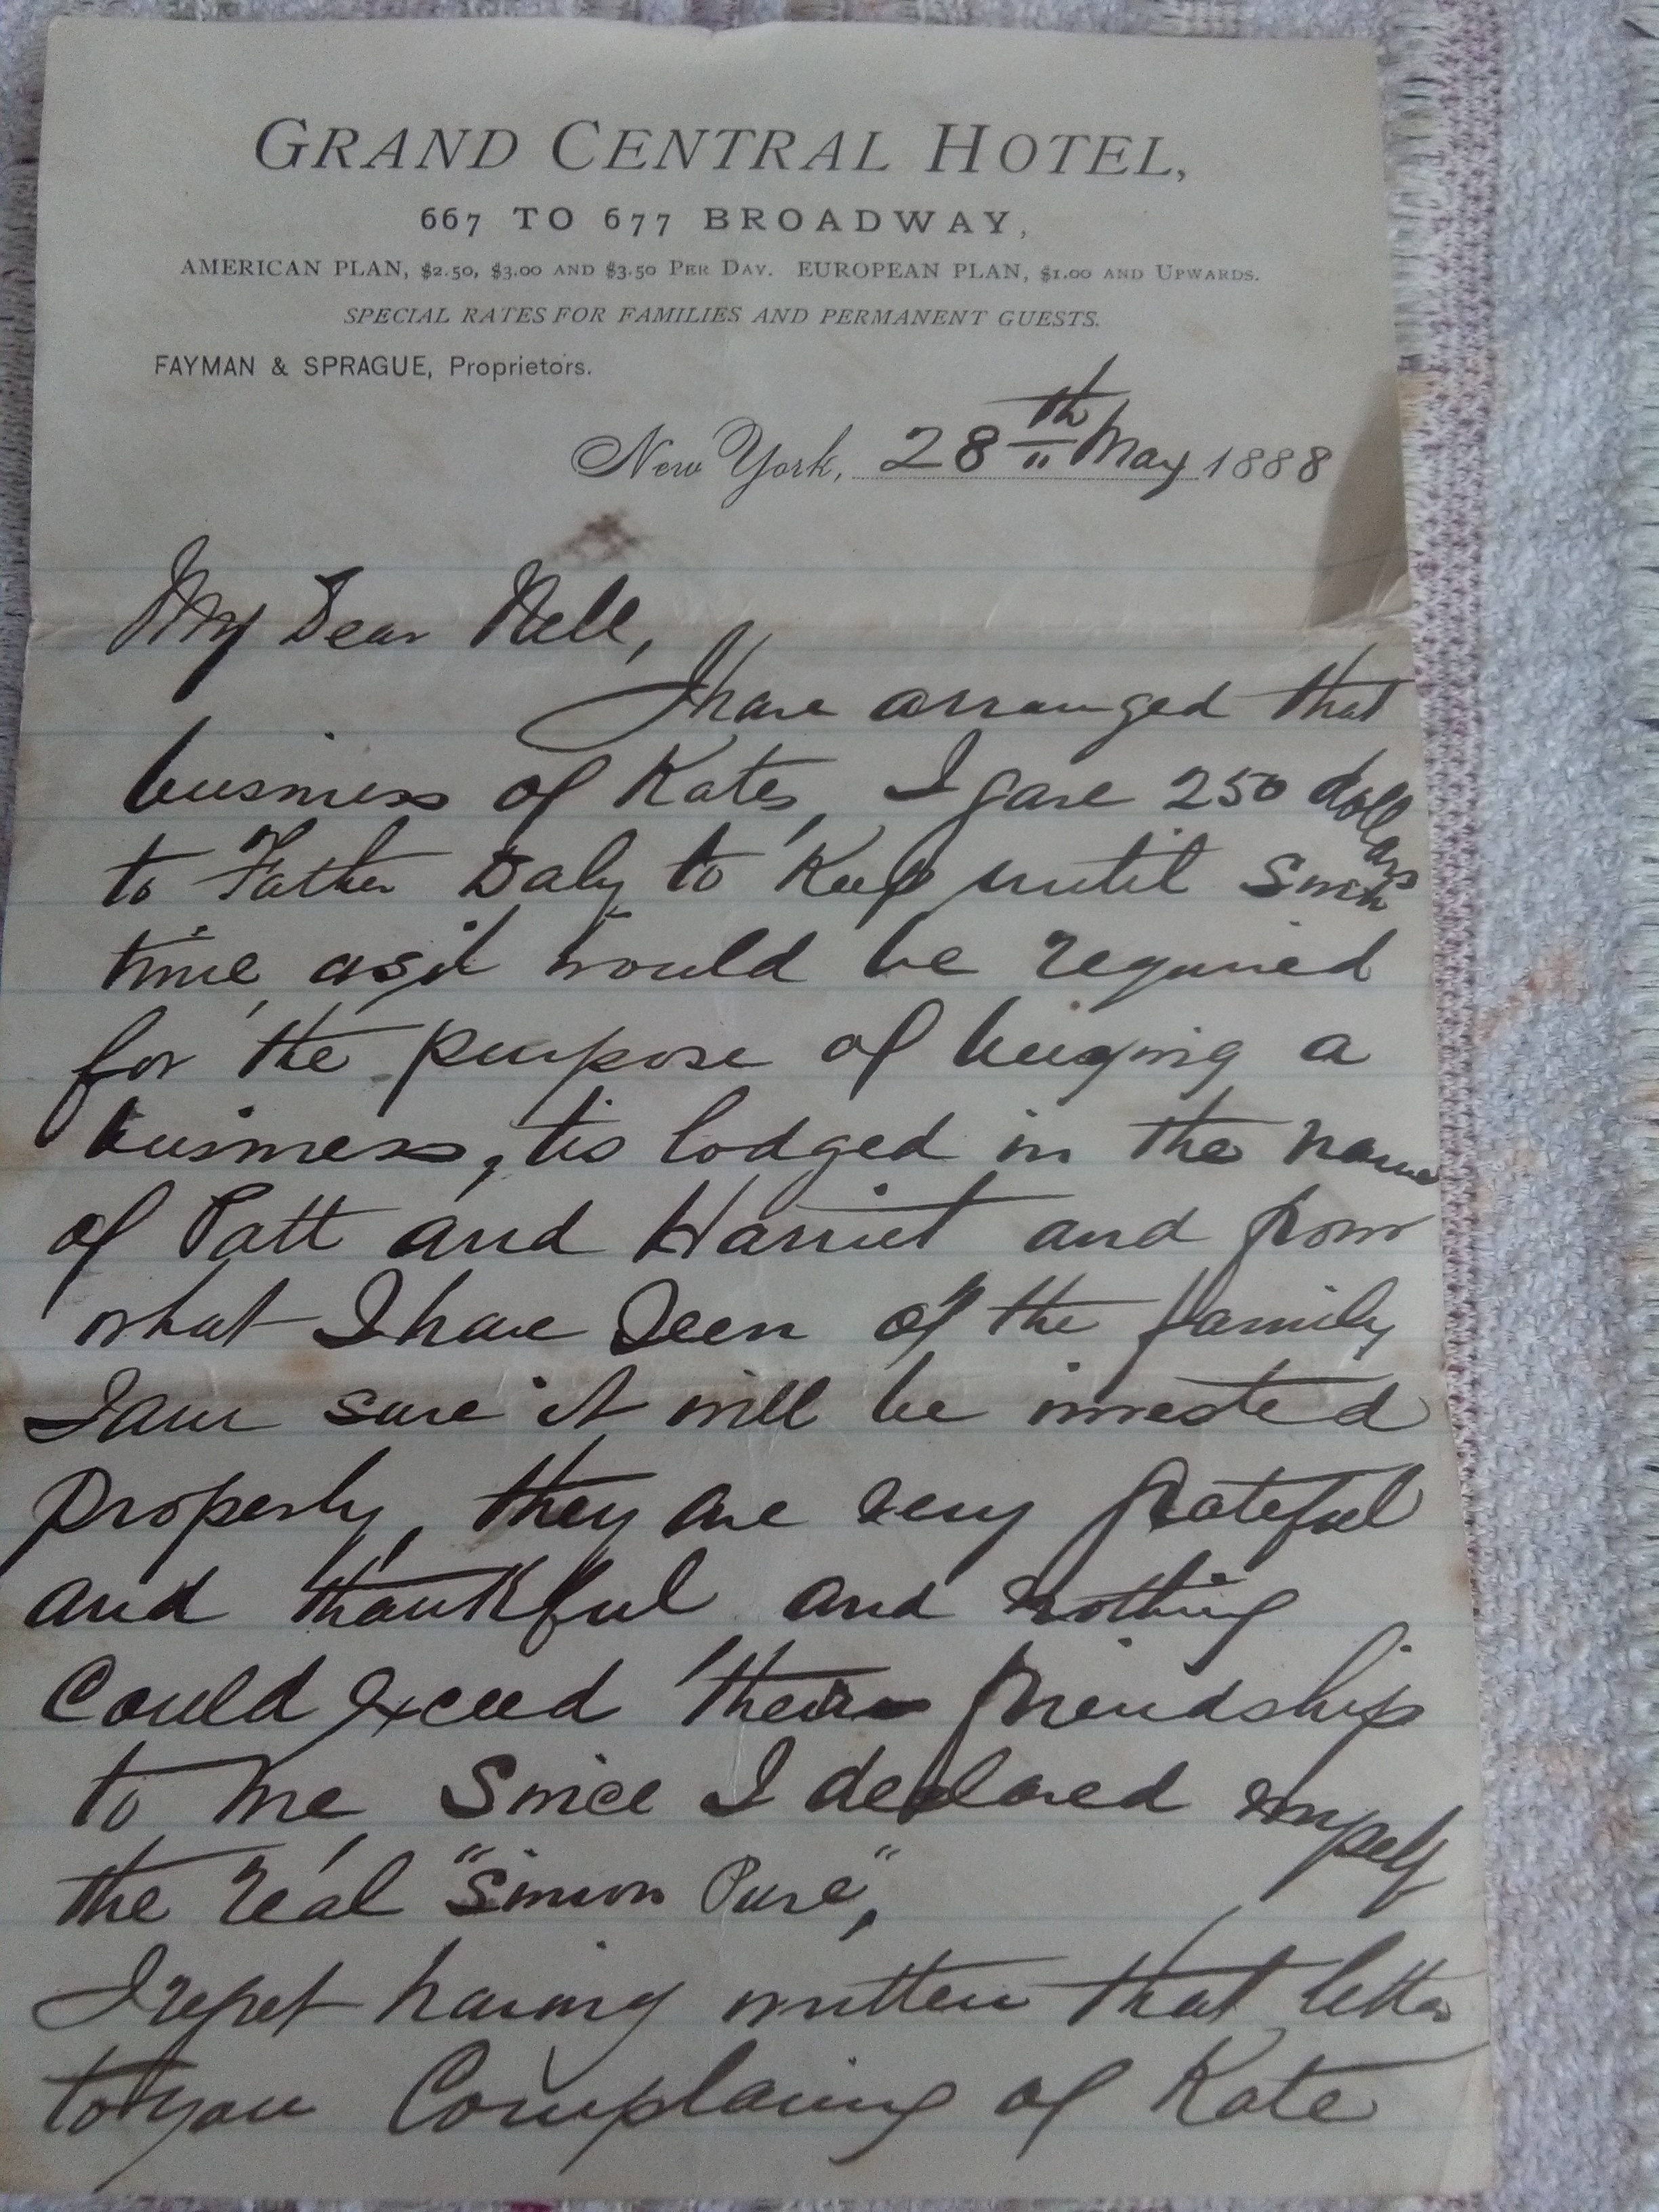 GRAND CENTRAL HOTEL,
667 TO 677 BROADWAY,
AMERICAN PLAN, $2.50, $3.00 AND $3.50 PER DAY. EUROPEAN PLAN, $1.00 AND UPWARDS.
SPECIAL RATES FOR FAMILIES AND PERMANENT GUESTS.
FAYMAN & SPRAGUE, Proprietors.
New York, 28th May 1888
My Dear Nell,
I have arranged that
business of Kates, I gave 250 dollars
to Father Daly to Keep until Such
time, as it would be required
for the purpose of buying a
business, tis lodged in the name
of Patt and Harriet and from
what I have Seen of the family
I am sure it will be invested
properly, they are very grateful
and thankful and nothing
Could exceed their friendship
to me, Since I declared myself
the real "Simon Pure",
I regret having written that letter
to you Complaining of Kate